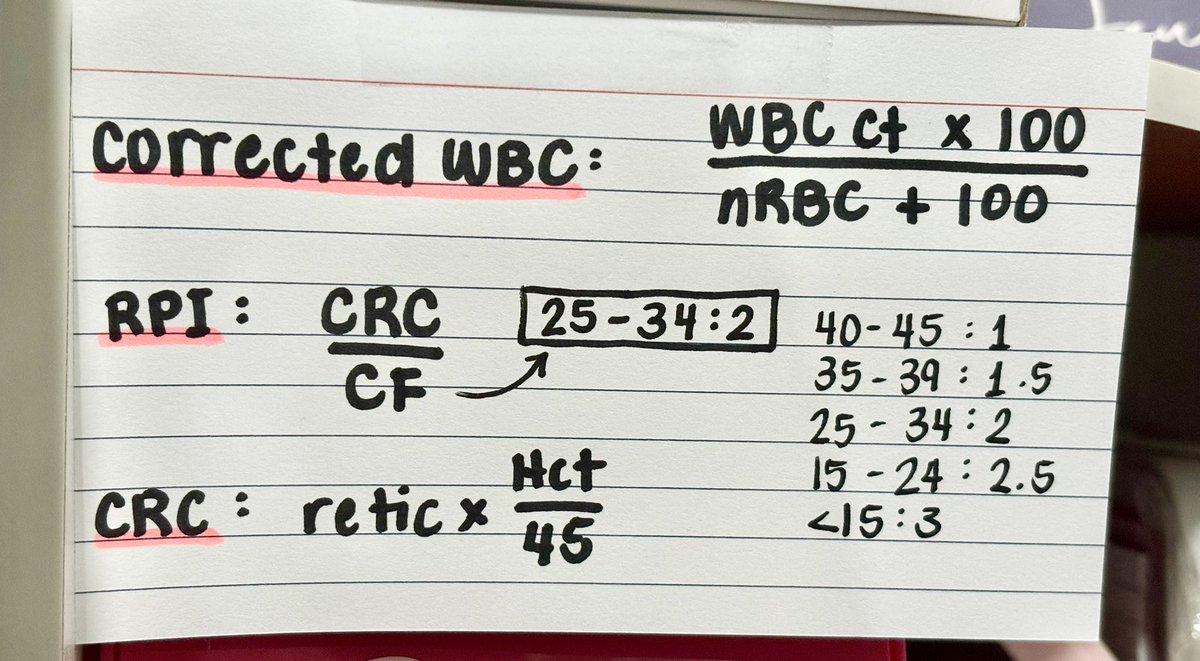 Corrected WBC: WBC ct x 100
nRBC + 100
RPI: CRC
CF
25-34:2
40-45 : 1
35-39 : 1.5
25-34:2
15-24 : 2.5
<15:3
CRC: retic x Hct
45